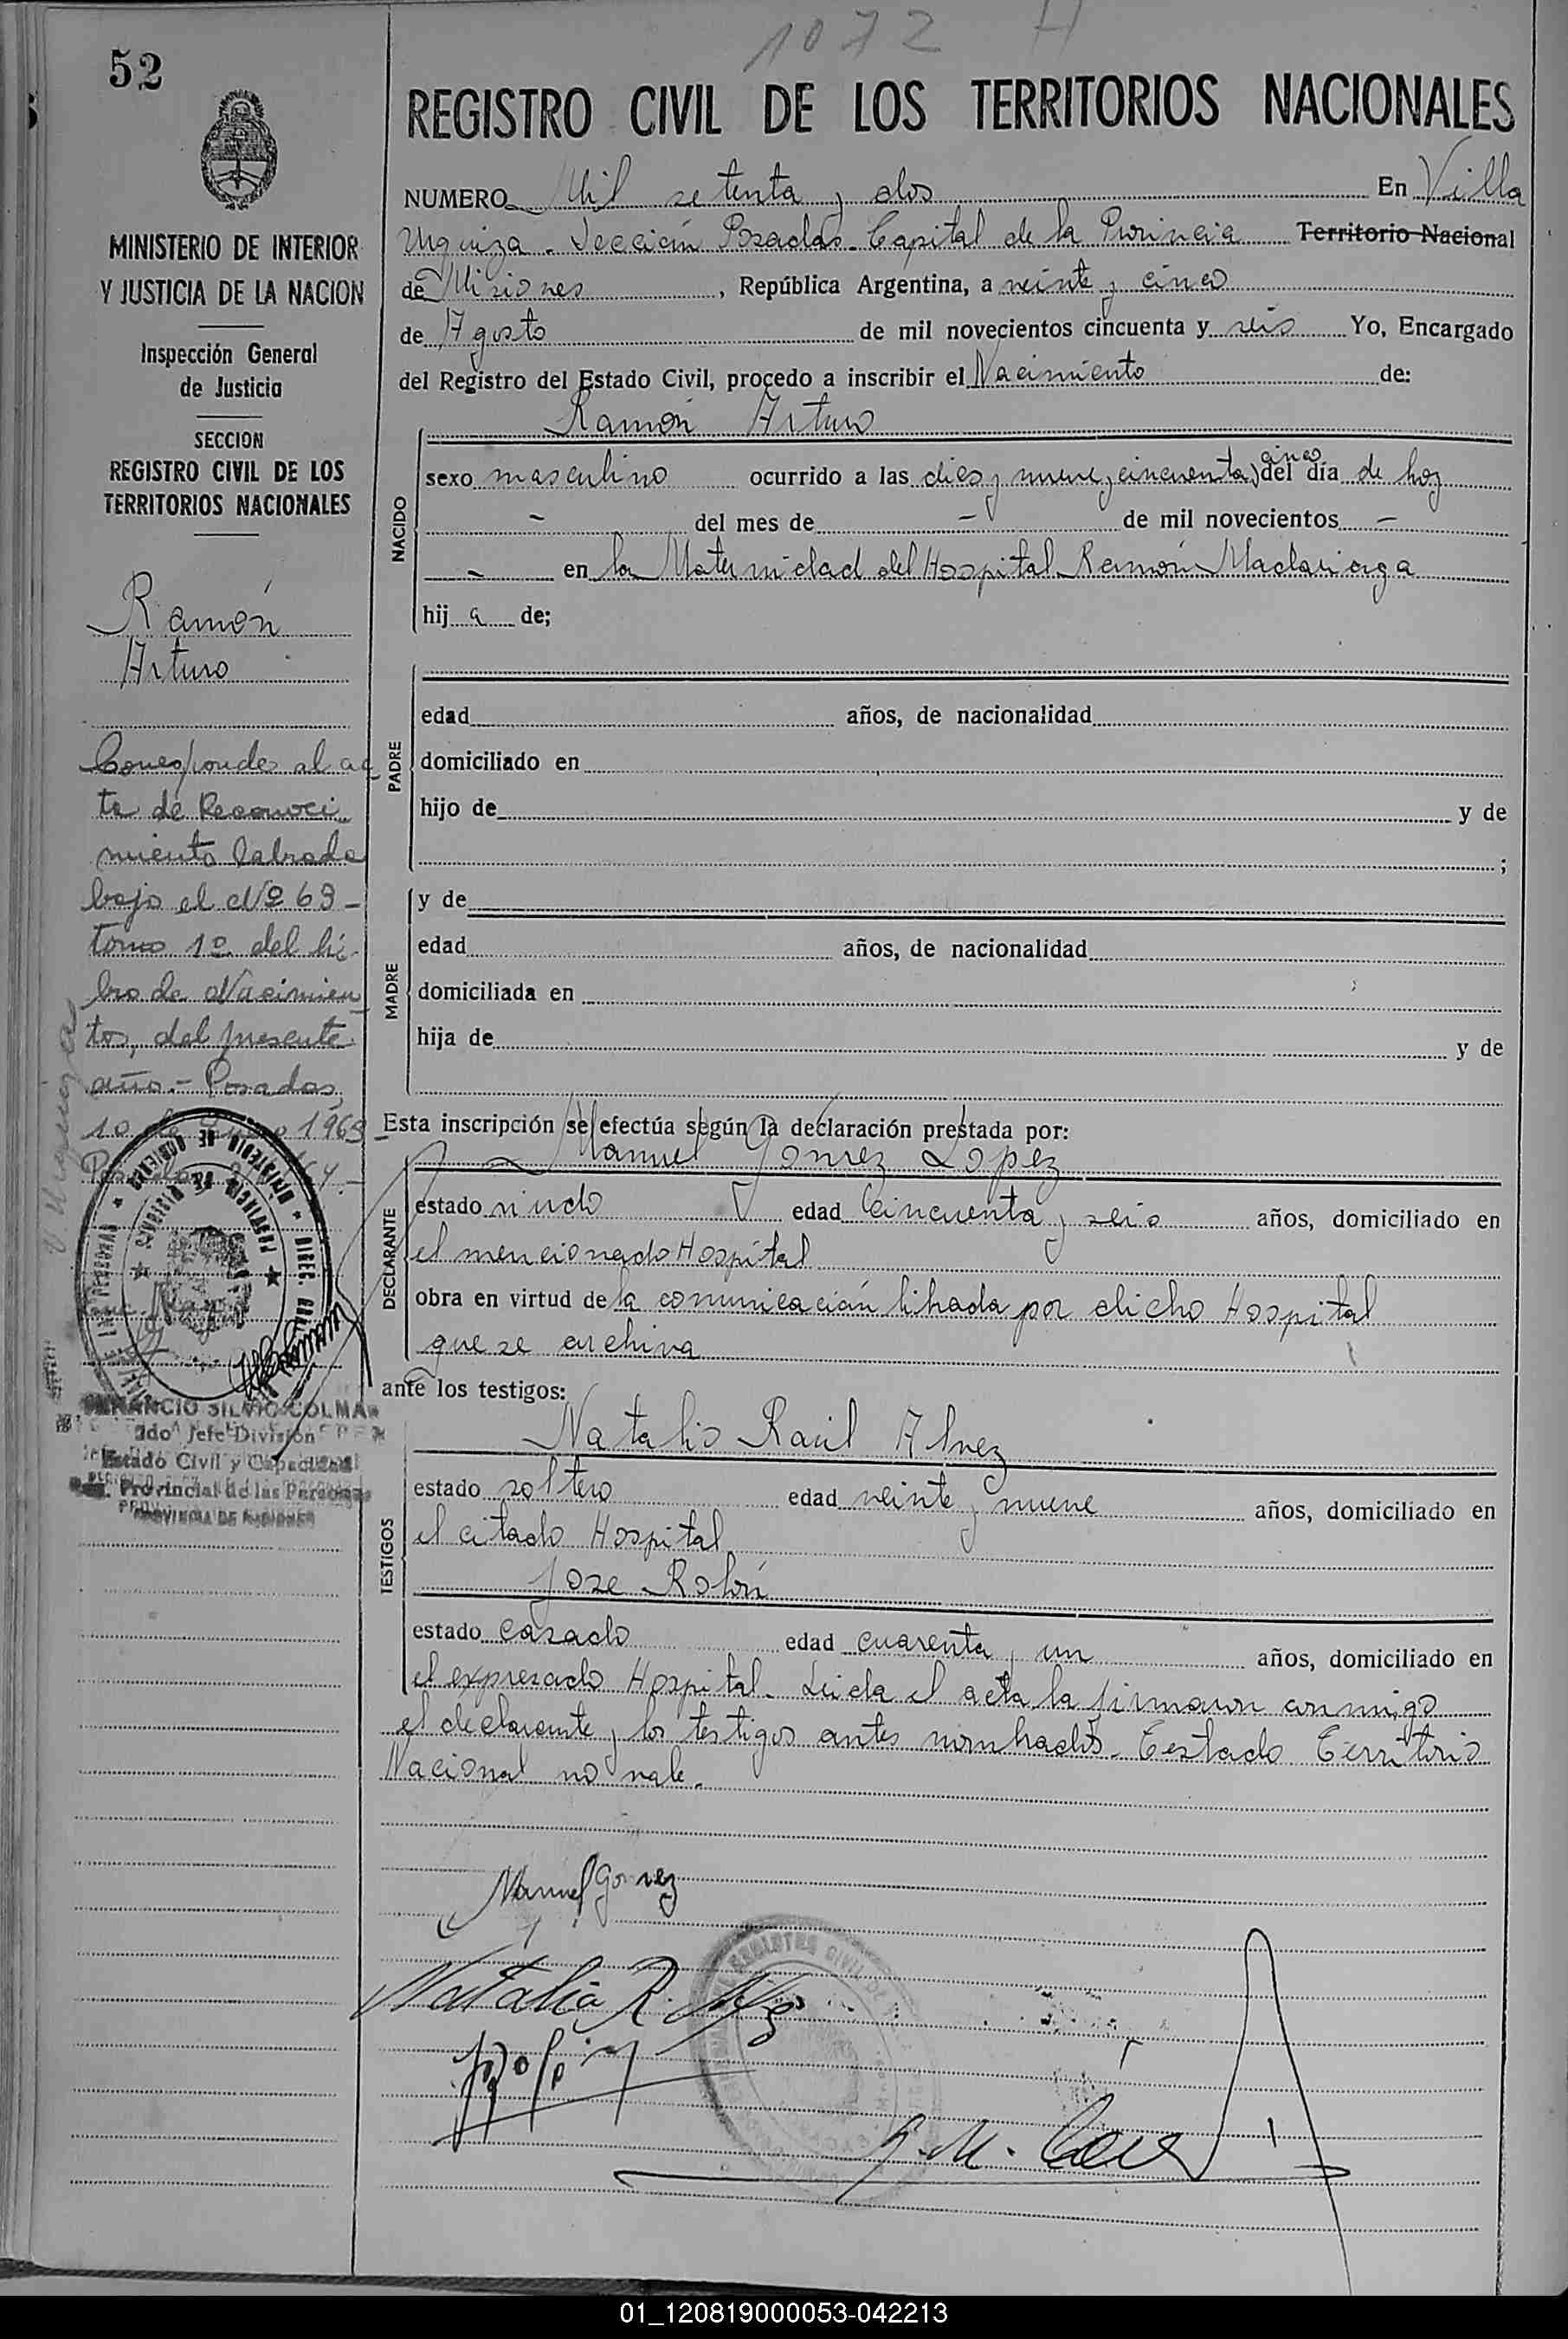 1072 H
52
REGISTRO CIVIL DE LOS TERRITORIOS NACIONALES
NUMERO Mil setenta y dos En Villa
Urquiza - Sección Posadas - Capital de la Provincia Territorio Nacional
de Misiones, República Argentina, a veinte y cinco
de Agosto de mil novecientos cincuenta y seis Yo, Encargado
del Registro del Estado Civil, procedo a inscribir el Nacimiento de:
Ramón Arturo
NACIDO
sexo masculino ocurrido a las dies y nueve y cincuenta y cinco del día de hoy
- del mes de - de mil novecientos -
- en la Maternidad del Hospital Ramón Madariaga
hij a de;
PADRE
edad años, de nacionalidad
domiciliado en
hijo de y de
;
MADRE
y de
edad años, de nacionalidad
domiciliada en
hija de y de
Esta inscripción se efectúa según la declaración prestada por:
Manuel Gomez Lopez
DECLARANTE
estado viudo edad Cincuenta y seis años, domiciliado en
el mencionado Hospital
obra en virtud de la comunicación librada por dicho Hospital
que se archiva
ante los testigos:
TESTIGOS
Natalio Raúl Alvez
estado soltero edad veinte y nueve años, domiciliado en
el citado Hospital
Jose Rolón
estado casado edad cuarenta y un años, domiciliado en
el expresado Hospital. Leida el acta la firmaron conmigo
el declarante y los testigos antes nombrados. Testado Territorio
Nacional no vale.
Manuel Gomez
Natalio R. Alvez
MINISTERIO DE INTERIOR
Y JUSTICIA DE LA NACION
Inspección General
de Justicia
SECCION
REGISTRO CIVIL DE LOS
TERRITORIOS NACIONALES
Ramón
Arturo
Corresponde al ac
ta de Reconoci
miento labrada
bajo el Nº 69 -
tomo 1º del li-
bro de Nacimien
tos, del presente
año.- Posadas,
10 de 1969
SILVIO COLMAN
2do Jefe División
Estado Civil y Capacidad
Reg. Provincial de las Personas
PROVINCIA DE MISIONES
01_120819000053-042213